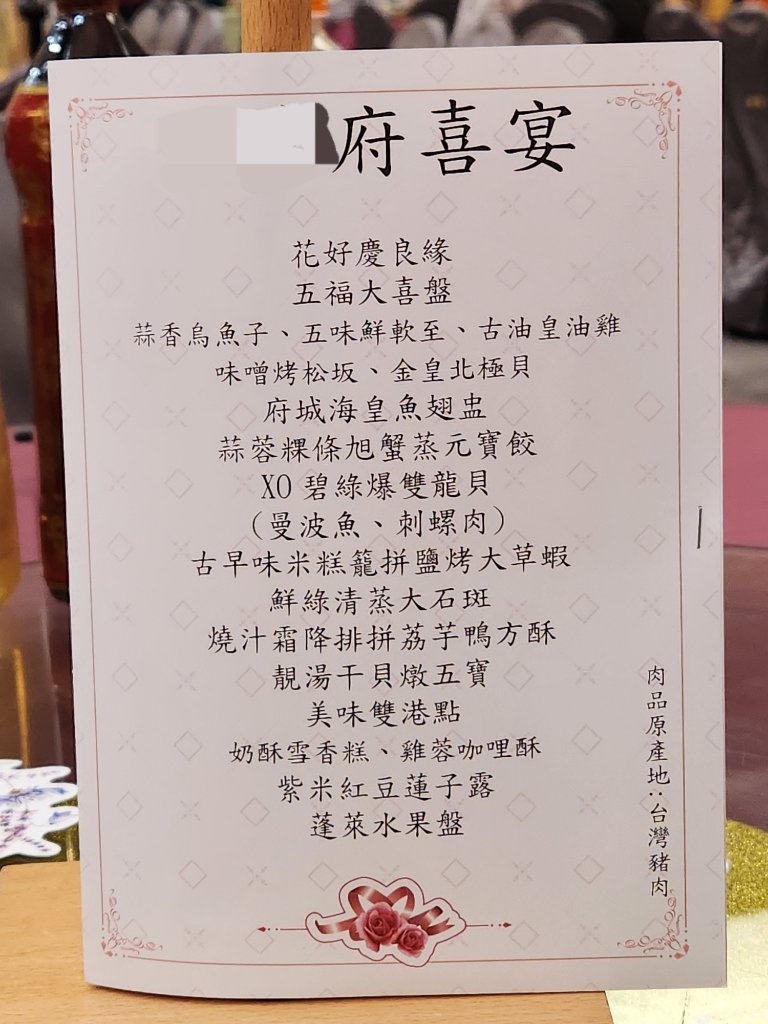 府喜宴
花好慶良緣
五福大喜盤
蒜香烏魚子、五味鮮軟至、古油皇油雞
味噌烤松坂、金皇北極貝
府城海皇魚翅盅
蒜蓉粿條旭蟹蒸元寶餃
XO 碧綠爆雙龍貝
（曼波魚、刺螺肉）
古早味米糕籠拼鹽烤大草蝦
鮮綠清蒸大石斑
燒汁霜降排拼荔芋鴨方酥
靚湯干貝燉五寶
美味雙港點
奶酥雪香糕、雞蓉咖哩酥
紫米紅豆蓮子露
蓬萊水果盤
肉品原產地：台灣豬肉